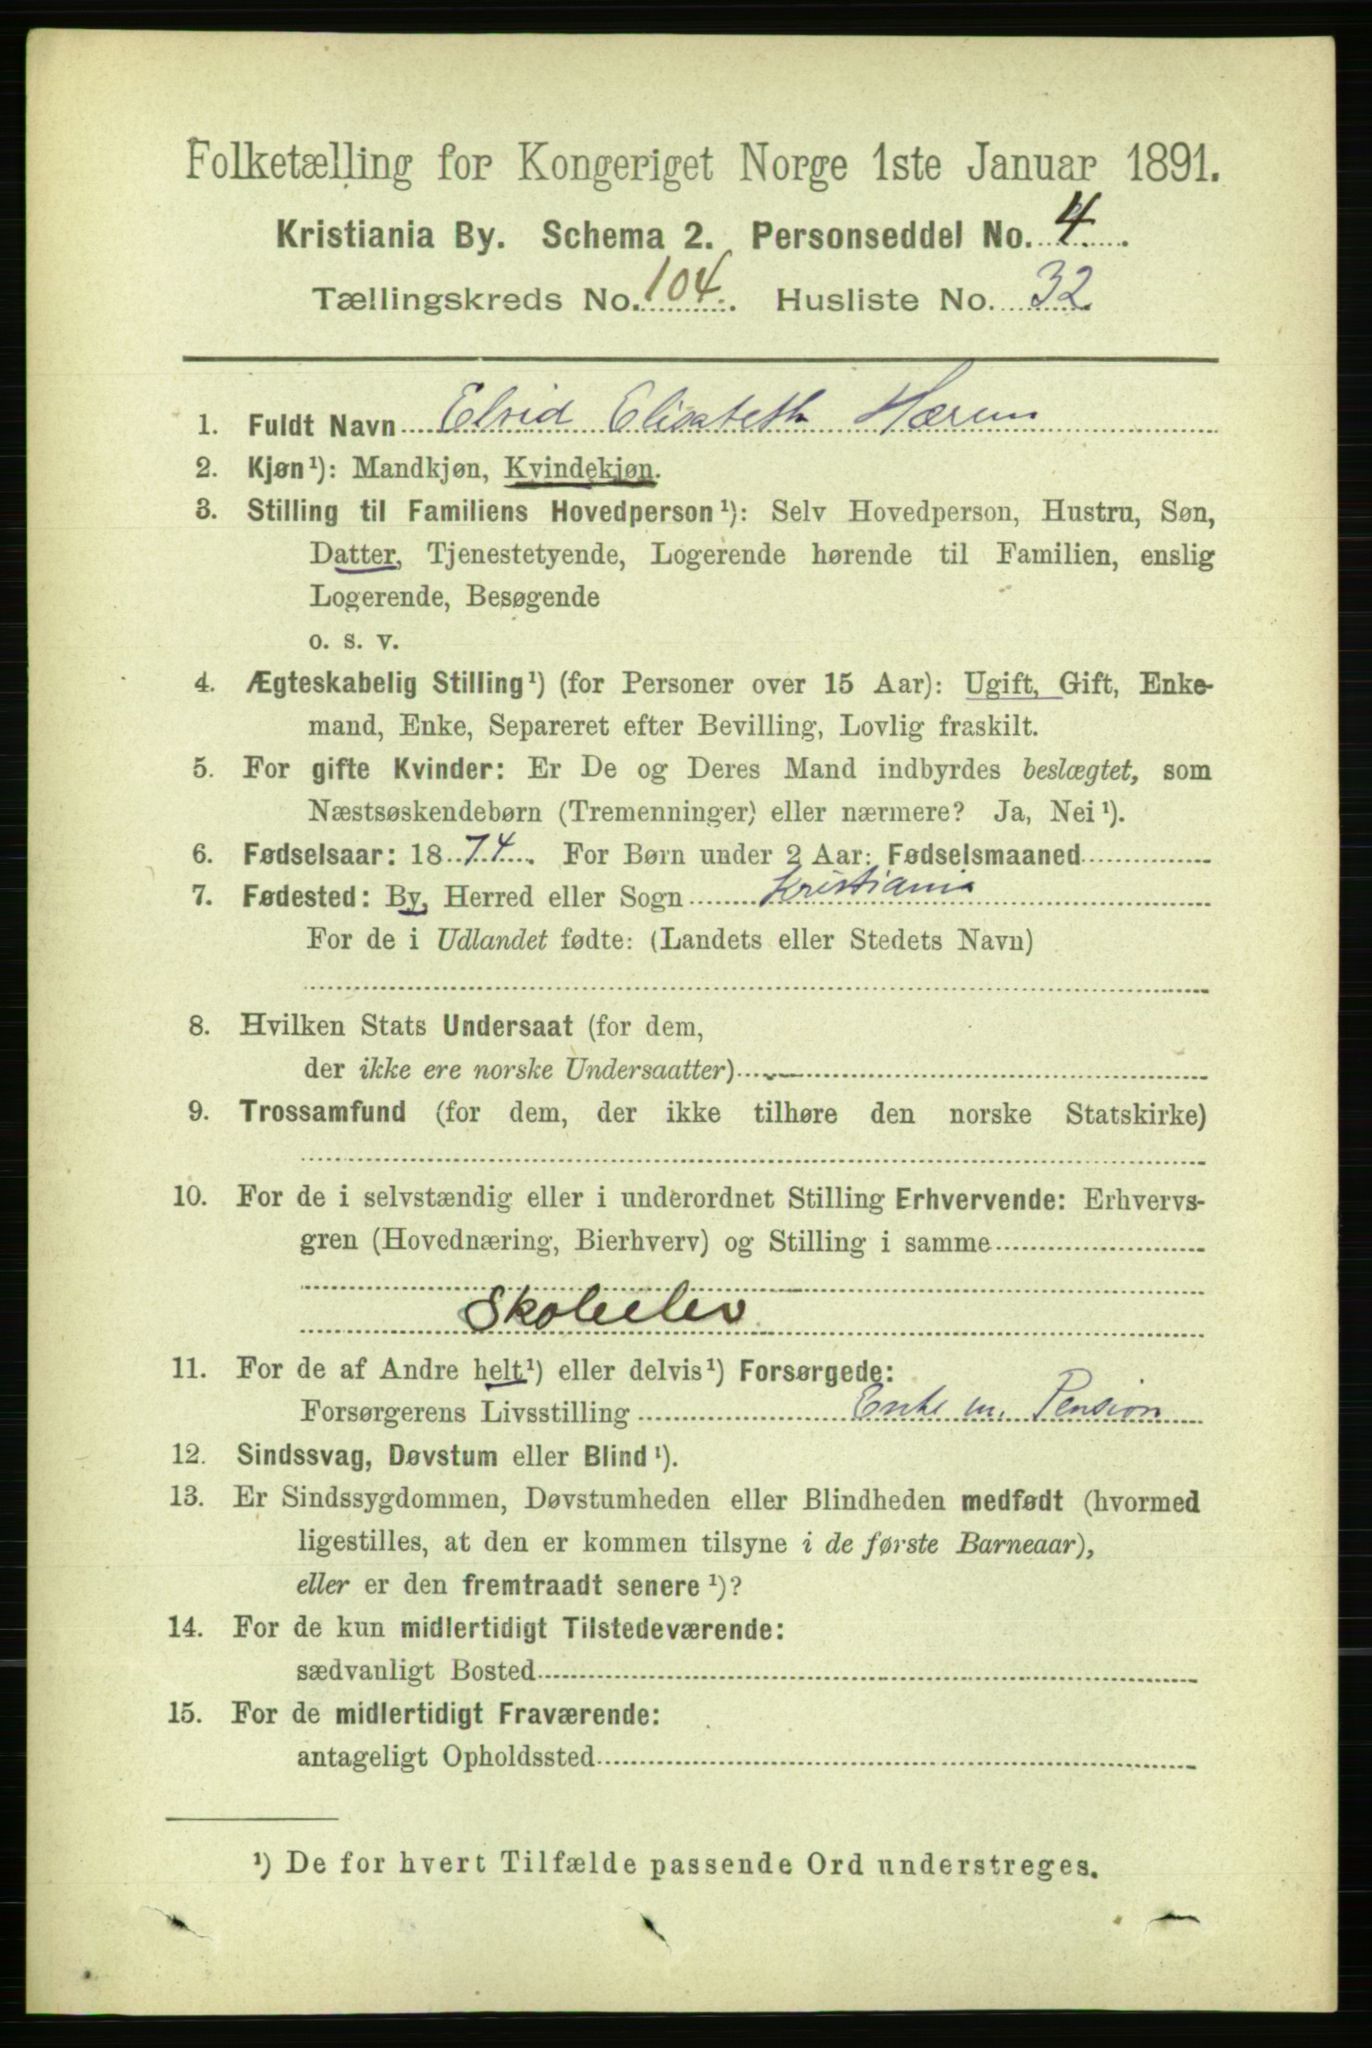 Folketælling for Kongeriget Norge 1ste Januar 1891.
Kristiania By. Schema 2. Personseddel No. 4
Tællingskreds No. 104. Husliste No. 32.
1. Fuldt Navn Elvid Elisabeth Hærem
2. Kjøn¹): Mandkjøn, Kvindekjøn.
3. Stilling til Familiens Hovedperson¹): Selv Hovedperson, Hustru, Søn,
Datter, Tjenestetyende, Logerende hørende til Familien, enslig
Logerende, Besøgende
o. s. v.
4. Ægteskabelig Stilling¹) (for Personer over 15 Aar): Ugift, Gift, Enke-
mand, Enke, Separeret efter Bevilling, Lovlig fraskilt.
5. For gifte Kvinder: Er De og Deres Mand indbyrdes beslægtet, som
Næstsøskendebørn (Tremenninger) eller nærmere? Ja, Nei¹).
6. Fødselsaar: 1874. For Børn under 2 Aar: Fødselsmaaned
7. Fødested: By, Herred eller Sogn Kristiania
For de i Udlandet fødte: (Landets eller Stedets Navn)
8. Hvilken Stats Undersaat (for dem,
der ikke ere norske Undersaatter)
9. Trossamfund (for dem, der ikke tilhøre den norske Statskirke)
10. For de i selvstændig eller i underordnet Stilling Erhvervende: Erhvervs-
gren (Hovednæring, Bierhverv) og Stilling i samme
Skoleelev
11. For de af Andre helt¹) eller delvis¹) Forsørgede:
Forsørgerens Livsstilling Enke m. Pension
12. Sindssvag, Døvstum eller Blind¹).
13. Er Sindssygdommen, Døvstumheden eller Blindheden medfødt (hvormed
ligestilles, at den er kommen tilsyne i de første Barneaar),
eller er den fremtraadt senere¹)?
14. For de kun midlertidigt Tilstedeværende:
sædvanligt Bosted
15. For de midlertidigt Fraværende:
antageligt Opholdssted
¹) De for hvert Tilfælde passende Ord understreges.